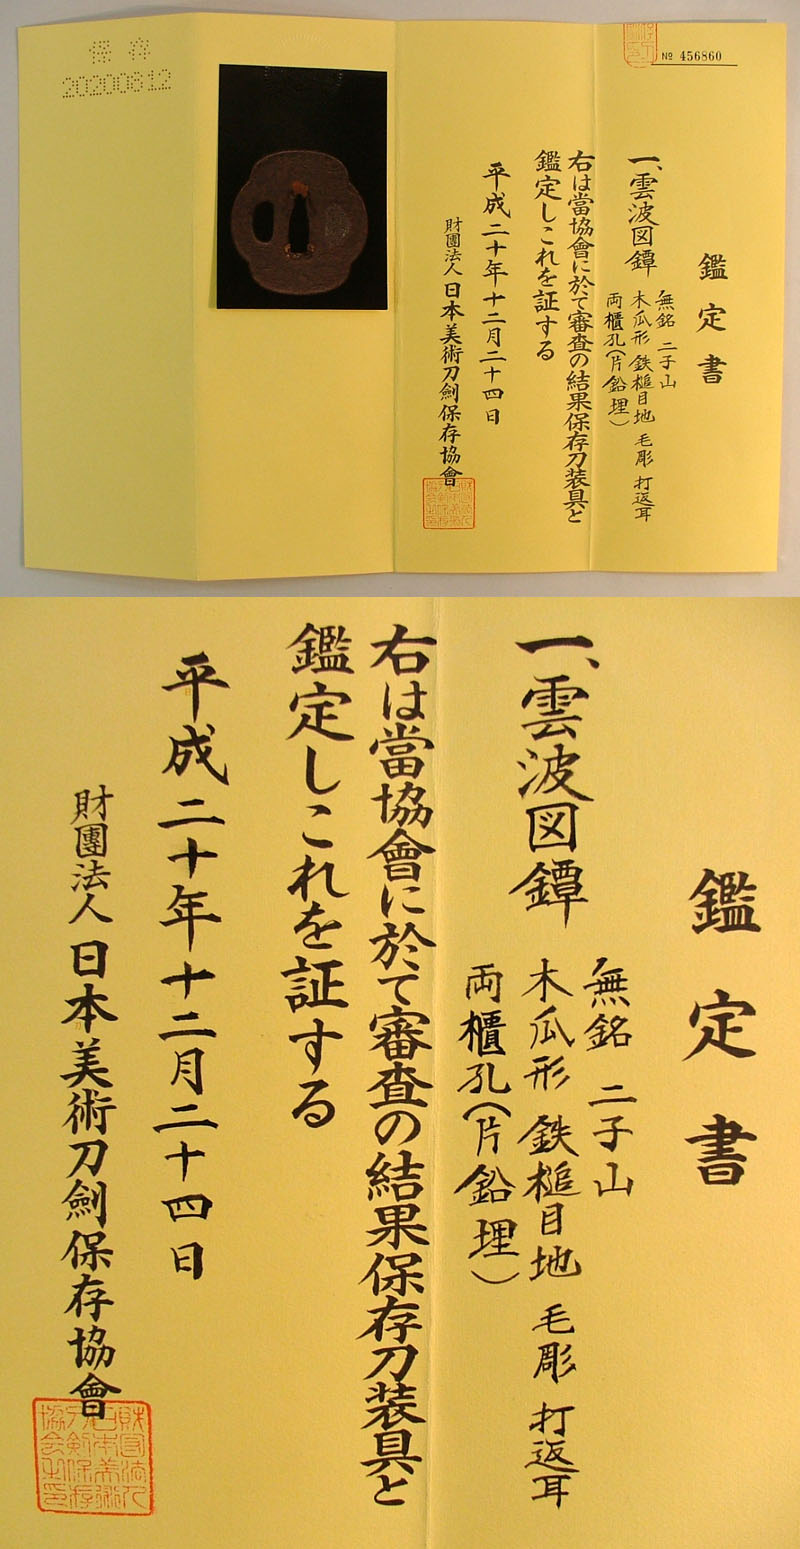 保存
20200812
№ 456860
鑑定書
一、雲波図鐔
無銘 二子山
木瓜形 鉄槌目地 毛彫 打返耳
両櫃孔(片鉛埋)
右は當協會に於て審査の結果保存刀装具と
鑑定しこれを証する
平成二十年十二月二十四日
財團法人 日本美術刀劍保存協會
鑑定書
一、雲波図鐔
無銘 二子山
木瓜形 鉄槌目地 毛彫 打返耳
両櫃孔(片鉛埋)
右は當協會に於て審査の結果保存刀装具と
鑑定しこれを証する
平成二十年十二月二十四日
財團法人 日本美術刀劍保存協會